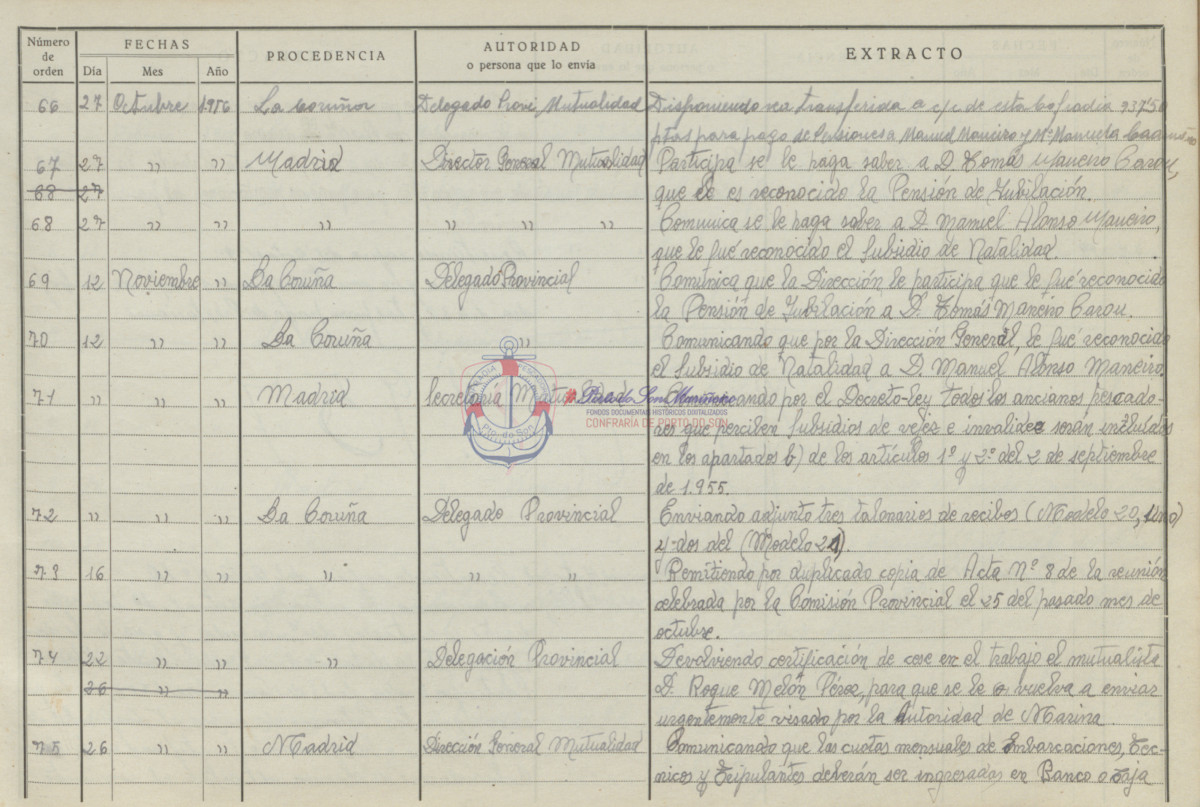 Número de orden FECHAS PROCEDENCIA AUTORIDAD o persona que lo envía EXTRACTO
Día Mes Año
66 27 Octubre 1956 La Coruña Delegado Provi. Mutualidad Disponiendo sea transferida a c/c de esta Cofradia 937'50
ptas para pago de Pensiones a Manuel Maneiro y Mª Manuela
67 27 " " Madrid Director General Mutualidad Participa se le haga saber a D. Tomás Maneiro Carou,
68 27 que le es reconocido la Pensión de Jubilación.
68 27 " " " " " " Comunica se le haga saber a D. Manuel Alonso Maneiro,
que le fué reconocido el Subsidio de Natalidad.
69 12 Noviembre " La Coruña Delegado Provincial Comunica que la Dirección le participa que le fué reconocido
la Pensión de Jubilación a D. Tomás Maneiro Carou.
70 12 " " La Coruña " Comunicando que por la Dirección General, le fué reconocido
el Subsidio de Natalidad a D. Manuel Alonso Maneiro.
71 " " " Madrid Secretaría por el Decreto-ley todos los ancianos pescado-
res que perciben Subsidios de vejez e invalidez serán incluidos
en los apartados b) de los artículos 1º y 2º del 2 de septiembre
de 1.955.
72 " " " La Coruña Delegado Provincial Enviando adjunto tres talonarios de recibos (Modelo 20, Uno)
y dos del (Modelo 21).
73 16 " " " " " Remitiendo por duplicado copia de Acta Nº 8 de la reunión
celebrada por la Comisión Provincial el 25 del pasado mes de
octubre.
74 22 " " " Delegación Provincial Devolviendo certificación de cese en el trabajo el mutualista
26 " " D. Roque Melón Pérez, para que se le vuelva a enviar
urgentemente visado por la Autoridad de Marina.
75 26 " " Madrid Dirección General Mutualidad Comunicando que las cuotas mensuales de Embarcaciones, Téc-
nicos y Tripulantes deberán ser ingresadas en Banco o Caja
Porto do Son
FONDOS DOCUMENTAIS HISTÓRICOS DIXITALIZADOS
CONFRARÍA DE PORTO DO SON
Pto. do Son